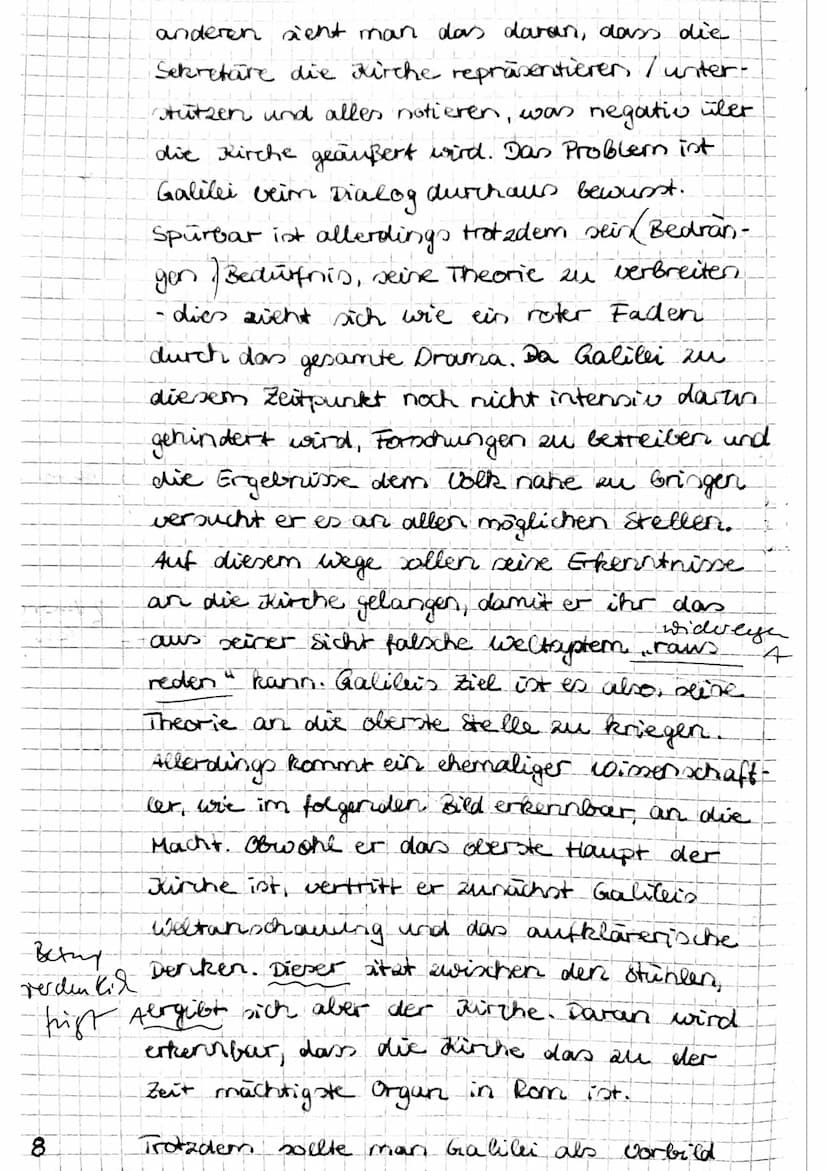 anderen sieht man das daran, dass die
Sekretäre die Kirche repräsentieren / unter-
stützen und alles notieren, was negativ über
die Kirche geäußert wird. Das Problem ist
Galilei beim Dialog durchaus bewusst.
Spürbar ist allerdings trotzdem sein (Bedrän-
gen) Bedürfnis, seine Theorie zu verbreiten
- dies zieht sich wie ein roter Faden
durch das gesamte Drama. Da Galilei zu
diesem Zeitpunkt noch nicht intensiv daran
gehindert wird, Forschungen zu betreiben und
die Ergebnisse dem Volk nahe zu bringen
versucht er es an allen möglichen Stellen.
Auf diesem Wege sollen seine Erkenntnisse
an die Kirche gelangen, damit er ihr das
aus seiner Sicht falsche Weltsystem „raus
A
reden" kann. Galileis Ziel ist es also, seine
Theorie an die oberste Stelle zu kriegen.
Allerdings kommt ein ehemaliger Wissenschaft-
ler, wie im folgenden Bild erkennbar, an die
Macht. Obwohl er das oberste Haupt der
Kirche ist, vertritt er zunächst Galileis
Weltanschauung und das aufklärerische
Denken. Dieser sitzt zwischen den Stühlen,
A ergibt sich aber der Kirche. Daran wird
erkennbar, dass die Kirche das zu der
Zeit mächtigste Organ in Rom ist.
8 Trotzdem sollte man Galilei als Vorbild